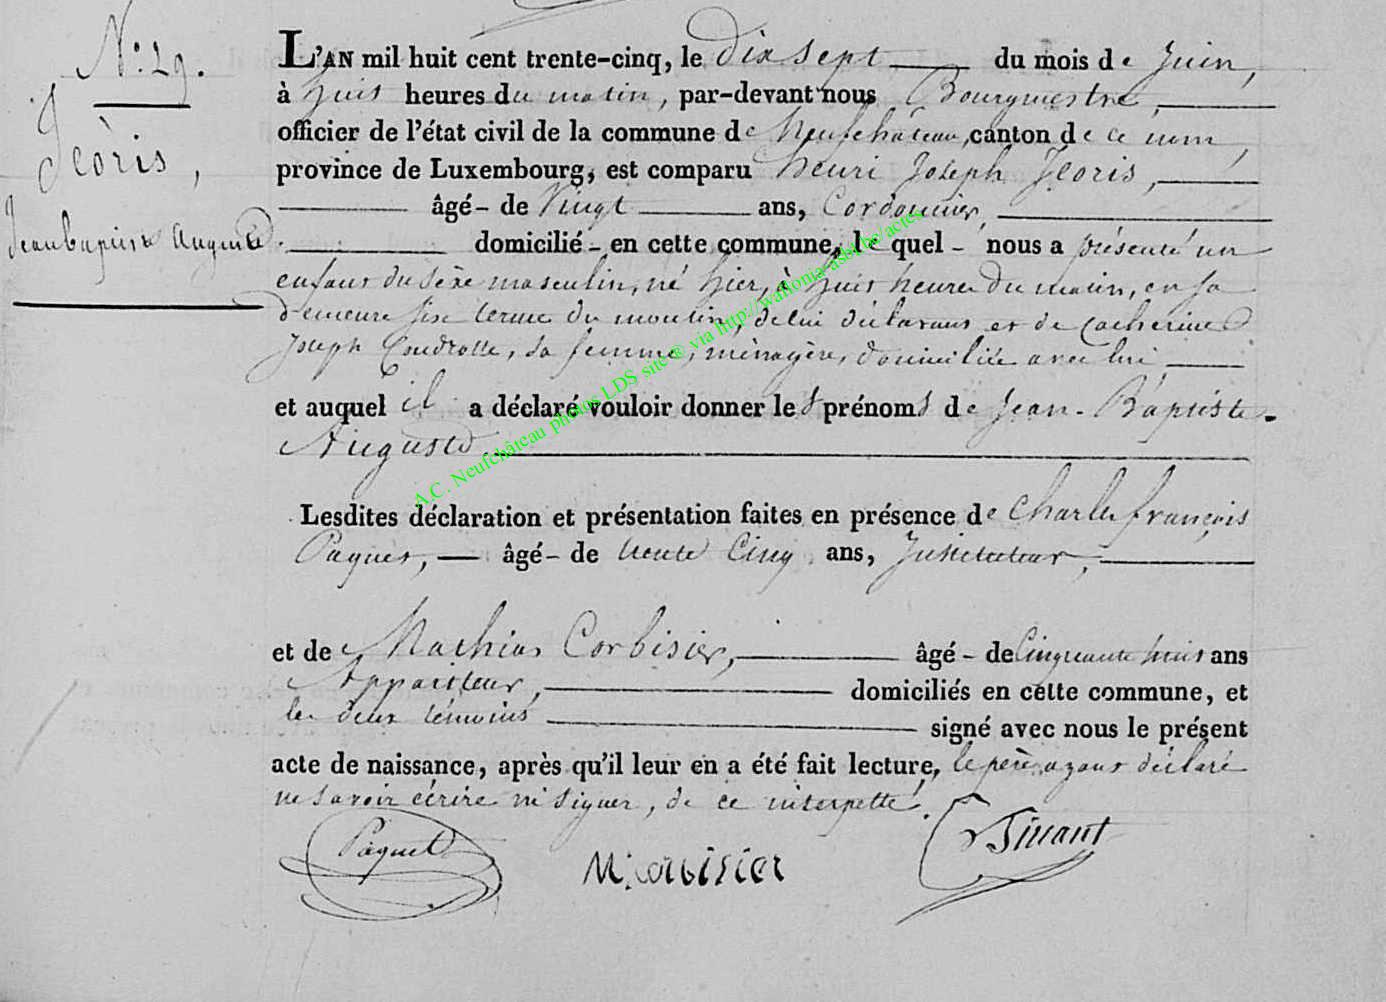 N.º 29.
Jeoris,
Jean baptiste Auguste
L'AN mil huit cent trente-cinq, le dix sept du mois de Juin,
à huit heures du matin, par-devant nous Bourgmestre,
officier de l'état civil de la commune de Neufchâteau, canton de ce nom,
province de Luxembourg, est comparu henri Joseph Jeoris,
âgé - de Vingt ans, Cordonnier,
domicilié - en cette commune, lequel - nous a présenté un
enfant du sexe masculin, né hier, à huit heures du matin, en sa
demeure sise du moulin, de lui déclarant et de Catherine
Joseph , sa femme, ménagère, domiciliée avec lui,
et auquel il a déclaré vouloir donner les prénoms de Jean-Baptiste-
Auguste.
Lesdites déclaration et présentation faites en présence de Charles françois
Paquet, âgé - de trente Cinq ans, Instituteur,
et de Mathias Corbisier, âgé - de Cinquante huit ans
Appariteur, domiciliés en cette commune, et
les deux témoins signé avec nous le présent
acte de naissance, après qu'il leur en a été fait lecture, le père ayant déclaré
ne savoir écrire ni signer, de ce interpellé.
Paquet
M: corbisier
A.C. Neufchâteau photos LDS site ® via http://wallonia-asbl.be/actes